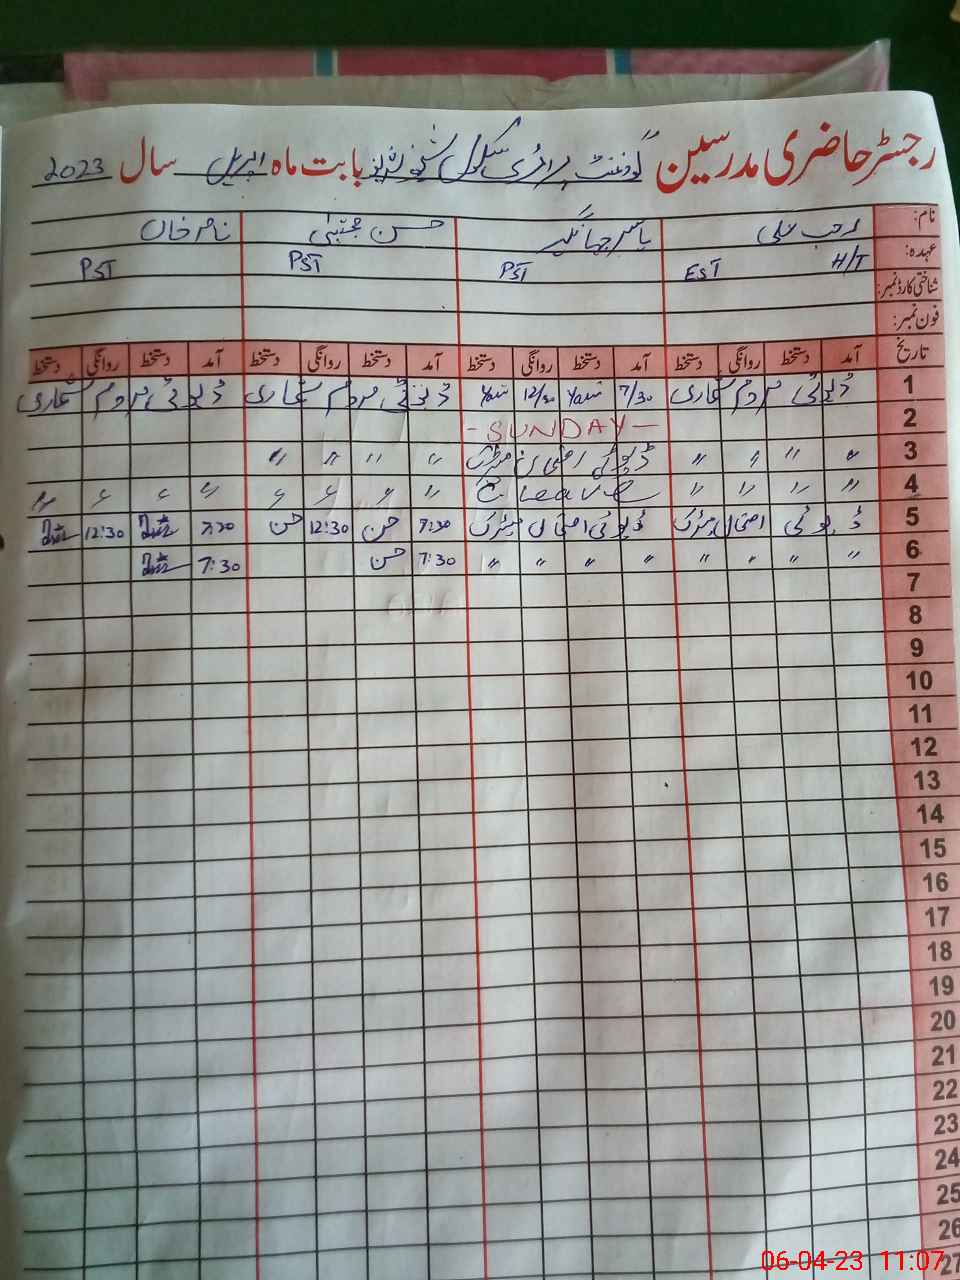 رجسٹر حاضری مدرسین گورنمنٹ پرائمری سکول بابت ماہ اپریل سال 2023
نام: رجب علی یاسر جہانگیر حسن مجتبیٰ ناصر خان
عہدہ: H/T EST PST PST PST
شناختی کارڈ نمبر:
فون نمبر:
تاریخ آمد دستخط روانگی دستخط آمد دستخط روانگی دستخط آمد دستخط روانگی دستخط آمد دستخط روانگی دستخط
1 ڈیوٹی مردم شماری 7/30 12/30 ڈیوٹی مردم شماری ڈیوٹی مردم شماری
2 - SUNDAY -
3 " " " " ڈیوٹی امتحان میٹرک " " " "
4 " " " " C leave " " " " " " " "
5 ڈیوٹی امتحان میٹرک ڈیوٹی امتحان میٹرک 7:30 حسن 12:30 حسن 7:30 12:30
6 " " " " " " " " 7:30 حسن 7:30
7
8
9
10
11
12
13
14
15
16
17
18
19
20
21
22
23
24
25
26
27
06-04-23 11:07